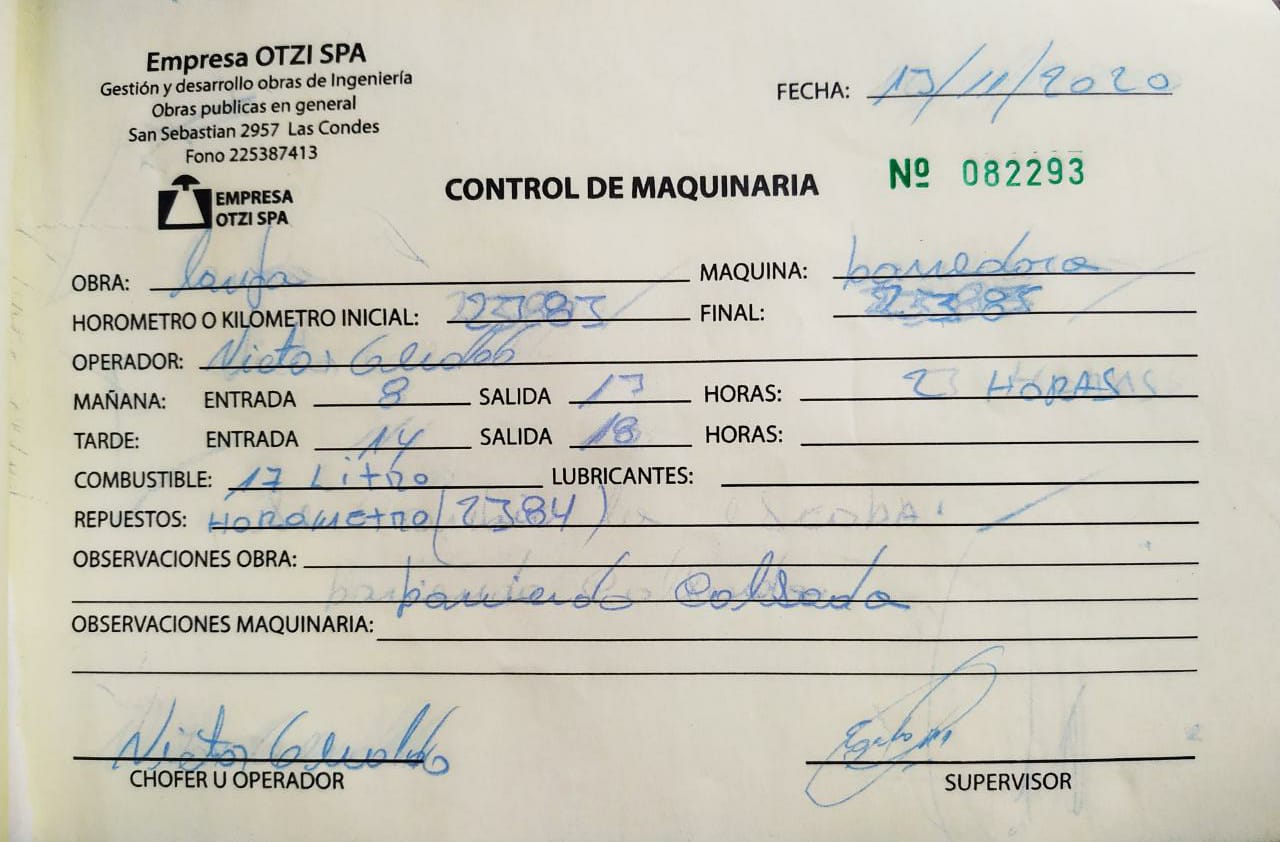 Empresa OTZI SPA
Gestión y desarrollo obras de Ingeniería
Obras publicas en general
San Sebastian 2957 Las Condes
Fono 225387413
EMPRESA
OTZI SPA
FECHA: 13/11/2020
CONTROL DE MAQUINARIA
Nº 082293
OBRA:
MAQUINA: barredora
HOROMETRO O KILOMETRO INICIAL: 2383
FINAL:
OPERADOR: Victor
MAÑANA: ENTRADA 8 SALIDA 13 HORAS: 23 HORAS
TARDE: ENTRADA 14 SALIDA 18 HORAS:
COMBUSTIBLE: 17 Litro LUBRICANTES:
REPUESTOS: HORAMEtRO (2384)
OBSERVACIONES OBRA:
barriendo Calsada
OBSERVACIONES MAQUINARIA:
Victor
CHOFER U OPERADOR
SUPERVISOR